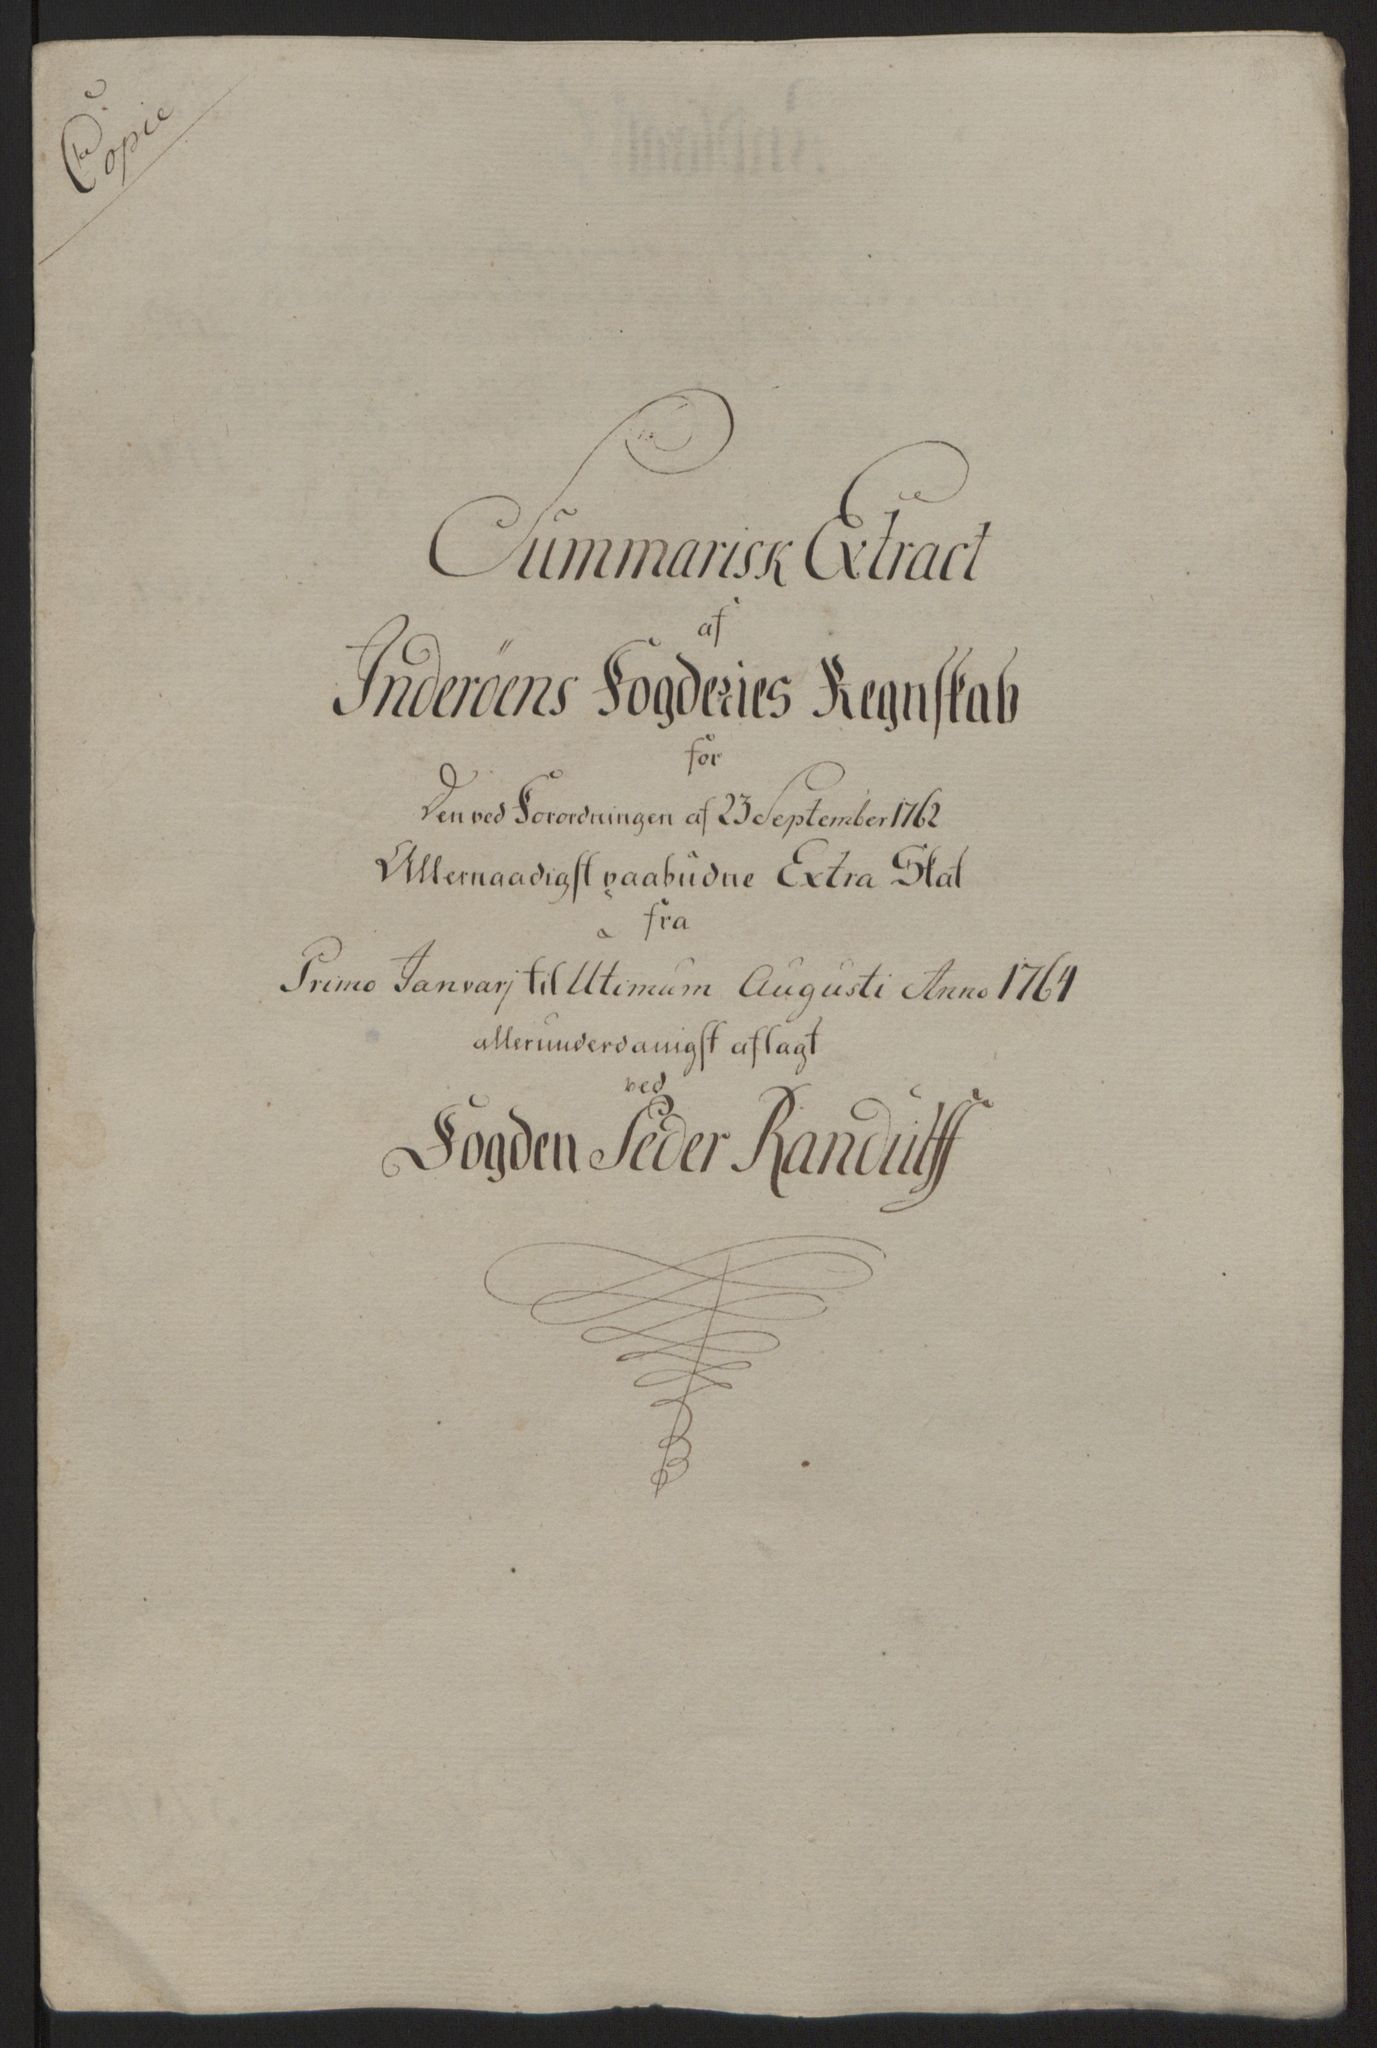 Copie
Summarisk Extract
af
Inderöens Fogderies Regnskab
for
Den ved Forordningen af 23 September 1762
Allernaadigst paabudne Extra Skat
fra
Primo Janvarj til Utimum Augusti Anno 1764
allerunderdanigst aflagt
ved
Fogden Peder Randulff